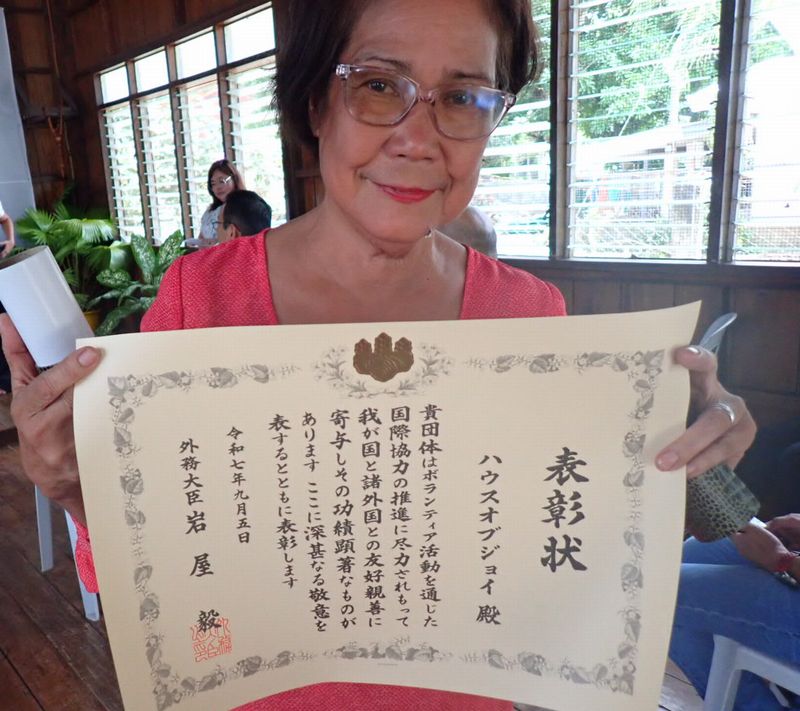 表彰状
ハウスオブジョイ 殿
貴団体はボランティア活動を通じた
国際協力の推進に尽力されもって
我が国と諸外国との友好親善に
寄与しその功績顕著なものが
あります ここに深甚なる敬意を
表するとともに表彰します
令和七年九月五日
外務大臣 岩屋 毅